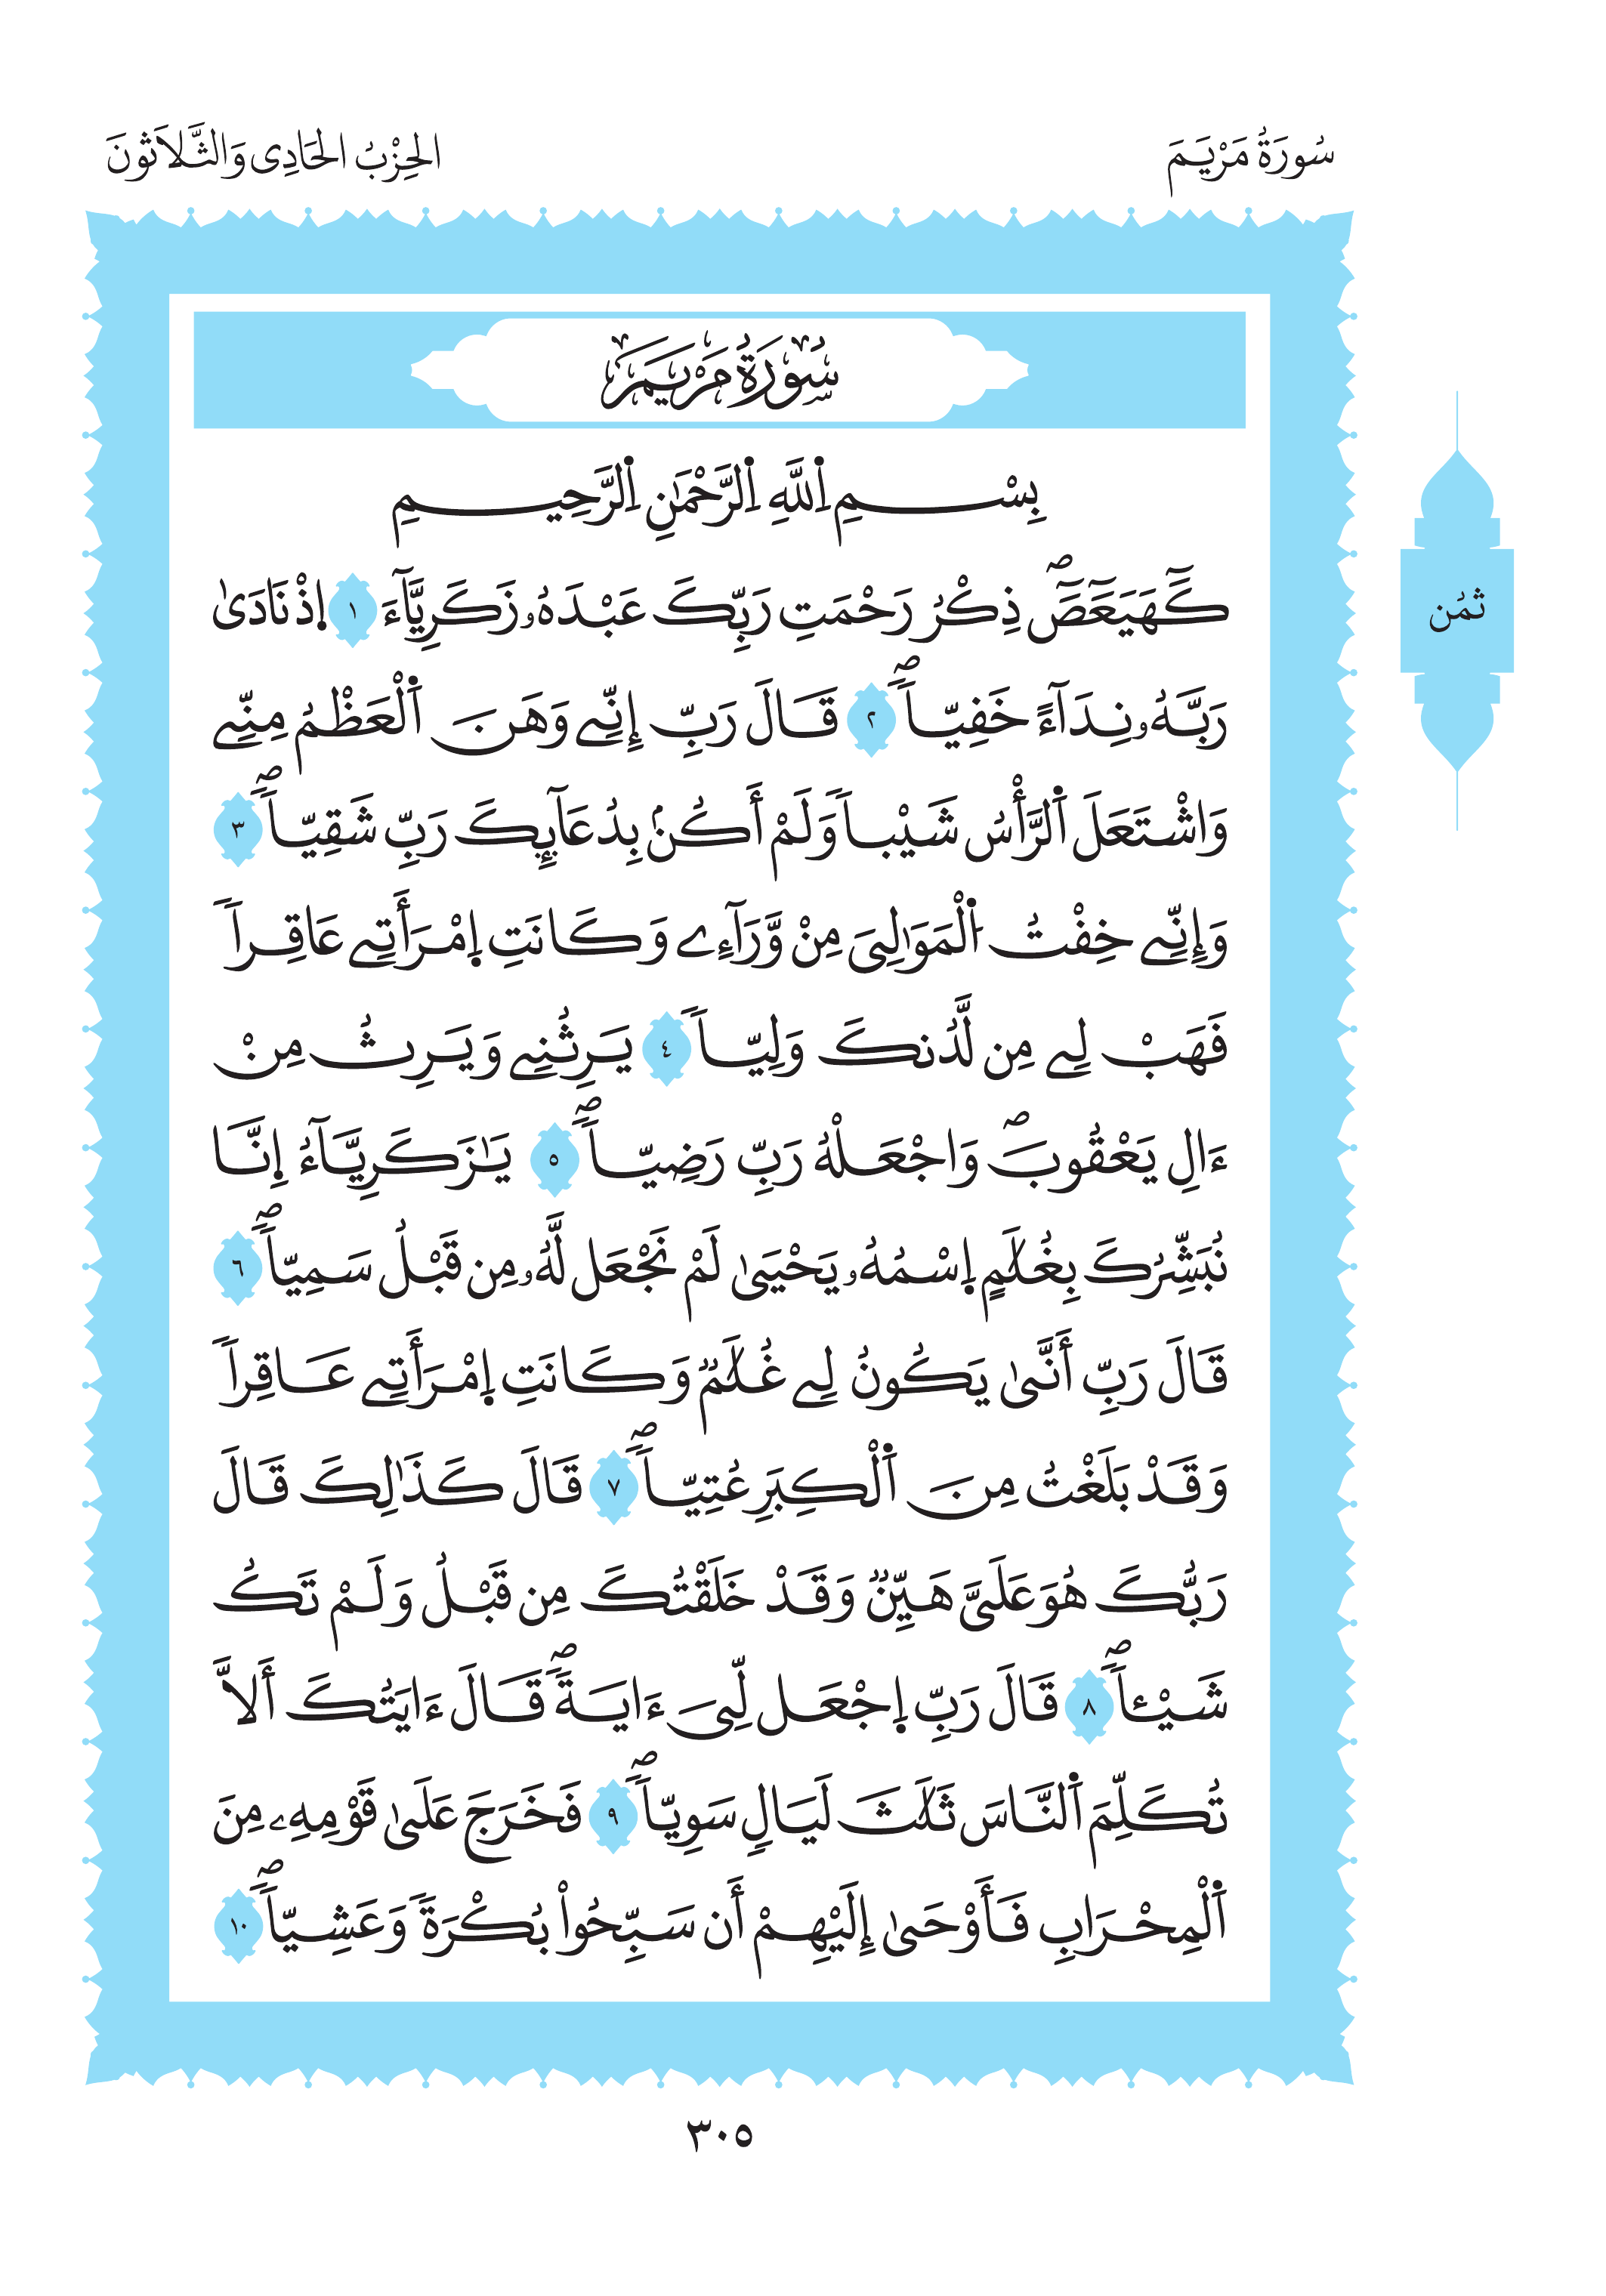 سُورَةُ مَرْيَمَ
الحِزْبُ الحَادِى وَالثَّلَاثونَ
سُورَةُ مَرْيَمَ
بِسْمِ اِ۬للَّهِ اِ۬لرَّحْمَٰنِ اِ۬لرَّحِيمِ
كَٓهَيَعَٓصَٓۖ ذِكْرُ رَحْمَتِ رَبِّكَ عَبْدَهُۥ زَكَرِيَّآءَ ١ اِذْ نَادَىٰ
رَبَّهُۥ نِدَآءً خَفِيّاࣰۖ ٢ قَالَ رَبِّ إِنِّے وَهَنَ اَ۬لْعَظْمُ مِنِّے
وَاشْتَعَلَ اَ۬لرَّأْسُ شَيْباࣰ وَلَمْ أَكُنۢ بِدُعَآئِكَ رَبِّ شَقِيّاࣰۖ ٣
وَإِنِّے خِفْتُ اُ۬لْمَوَٰلِىَ مِنْ وَّرَآءِے وَكَانَتِ اِمْرَأَتِے عَاقِراࣰ
فَهَبْ لِے مِن لَّدُنكَ وَلِيّاࣰ ٤ يَرِثُنِے وَيَرِثُ مِنْ
ءَالِ يَعْقُوبَۖ وَاجْعَلْهُ رَبِّ رَضِيّاࣰۖ ٥ يَٰزَكَرِيَّآءُ اِ۪نَّا
نُبَشِّرُكَ بِغُلَٰمٍ اِسْمُهُۥ يَحْيَىٰ لَمْ نَجْعَل لَّهُۥ مِن قَبْلُ سَمِيّاࣰۖ ٦
قَالَ رَبِّ أَنَّىٰ يَكُونُ لِے غُلَٰمٞ وَكَانَتِ اِمْرَأَتِے عَاقِراࣰ
وَقَدْ بَلَغْتُ مِنَ اَ۬لْكِبَرِ عُتِيّاࣰۖ ٧ قَالَ كَذَٰلِكَ قَالَ
رَبُّكَ هُوَ عَلَىَّ هَيِّنٞ وَقَدْ خَلَقْتُكَ مِن قَبْلُ وَلَمْ تَكُ
شَيْـٔاࣰۖ ٨ قَالَ رَبِّ اِجْعَل لِّىَ ءَايَةࣰۖ قَالَ ءَايَتُكَ أَلَّا
تُكَلِّمَ اَ۬لنَّاسَ ثَلَٰثَ لَيَالٍ سَوِيّاࣰۖ ٩ فَخَرَجَ عَلَىٰ قَوْمِهِۦ مِنَ
اَ۬لْمِحْرَابِ فَأَوْحَىٰ إِلَيْهِمْ أَن سَبِّحُواْ بُكْرَةࣰ وَعَشِيّاࣰۖ ١٠
ثمُن
٣٠٥